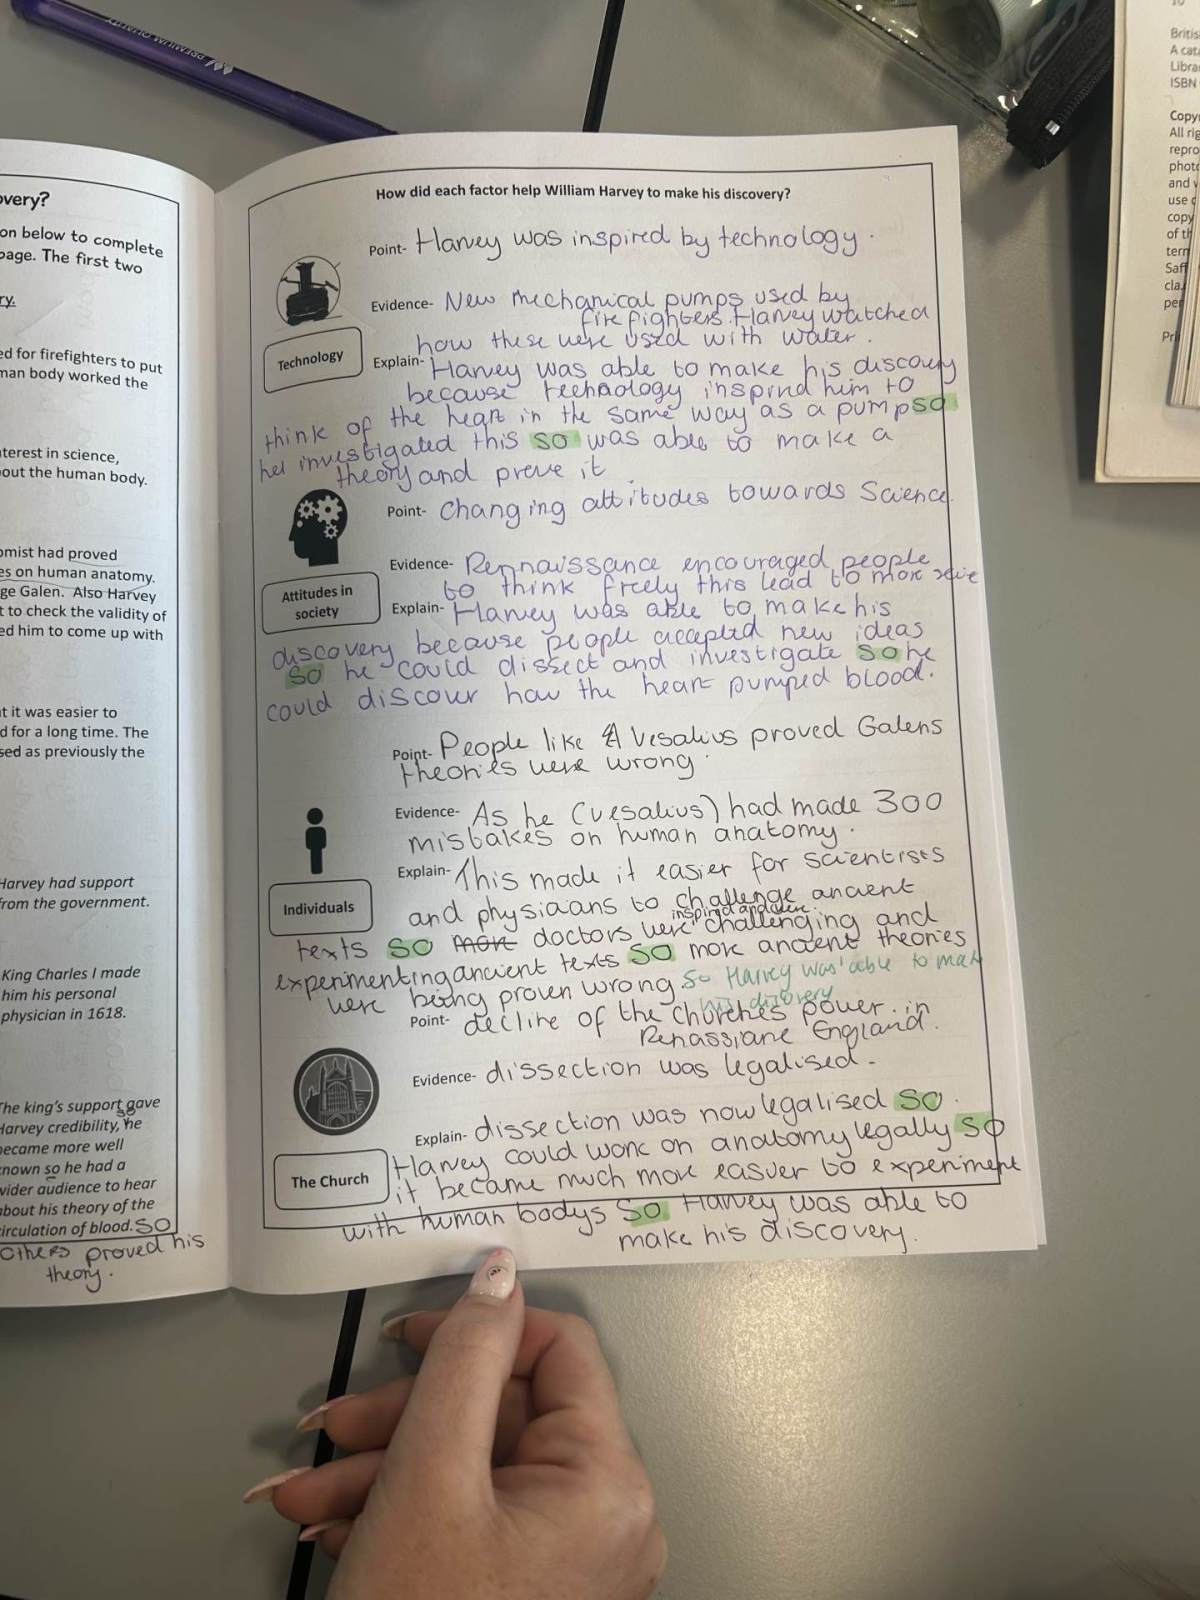 PREMIUM QUALITY
overy?
on below to complete
page. The first two
ry.
ed for firefighters to put
man body worked the
nterest in science,
out the human body.
omist had proved
es on human anatomy.
ge Galen. Also Harvey
t to check the validity of
ed him to come up with
t it was easier to
d for a long time. The
sed as previously the
Harvey had support
from the government.
King Charles I made
him his personal
physician in 1618.
The king's support gave
so
Harvey credibility, he
became more well
known so he had a
wider audience to hear
about his theory of the
circulation of blood. SO
others proved his
theory.
How did each factor help William Harvey to make his discovery?
Point- Harvey was inspired by technology.
Evidence- New mechanical pumps used by
firefighters. Harvey watched
how these were used with water.
Technology
Explain- Harvey was able to make his discovery
because technology inspired him to
think of the heart in the same way as a pump so
he investigated this so was able to make a
theory and prove it.
Point- Changing attitudes towards Science.
Evidence- Rennaissance encouraged people
to think freely this lead to more
Attitudes in
society
Explain- Harvey was able to make his
discovery because people accepted new ideas
so he could dissect and investigate so he
could discover how the heart pumped blood.
Point- People like Vesalius proved Galens
theories were wrong.
Evidence- As he (vesalius) had made 300
mistakes on human anatomy.
Individuals
Explain- This made it easier for scientists
and physicians to challenge ancient
inspired and were
texts so more doctors were challenging and
experimenting ancient texts so more ancient theories
were being proven wrong so Harvey was able to make
his discovery
Point- decline of the churches power in
Renassiane England.
Evidence- dissection was legalised.
The Church
Explain- dissection was now legalised so
Harvey could work on anatomy legally so
it became much more easuer to experiment
with human bodys so Harvey was able to
make his discovery.
Britis
A cat
Libra
ISBN
Copy
All rig
repro
photo
and v
use o
copy
of th
tern
Saff
cla
per
Pri